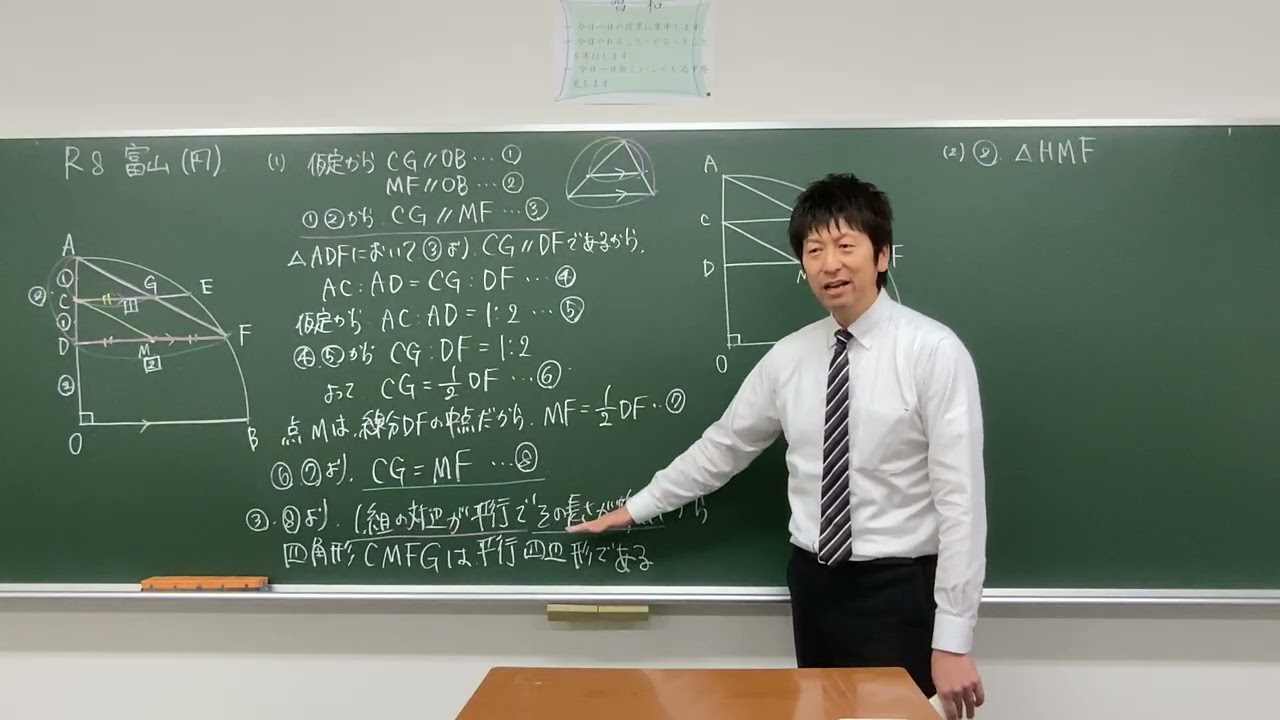 唱和
一 今日一日の授業に集中します
R8 富山(円)
(1) 仮定から CG // OB … ①
MF // OB … ②
①②から CG // MF … ③
△ADFにおいて③より CG // DFであるから、
AC : AD = CG : DF … ④
仮定から AC : AD = 1 : 2 … ⑤
④⑤から CG : DF = 1 : 2
よって CG = 1/2 DF … ⑥
点Mは、線分DFの中点だから、MF = 1/2 DF … ⑦
⑥⑦より、CG = MF … ⑧
③、⑧より、1組の対辺が平行でその長さが から
四角形CMFGは平行四四形である
A
① G E
② C 1
①
D M F
2
②
O B
A
C
D M F
O
(2) ⑧. △HMF